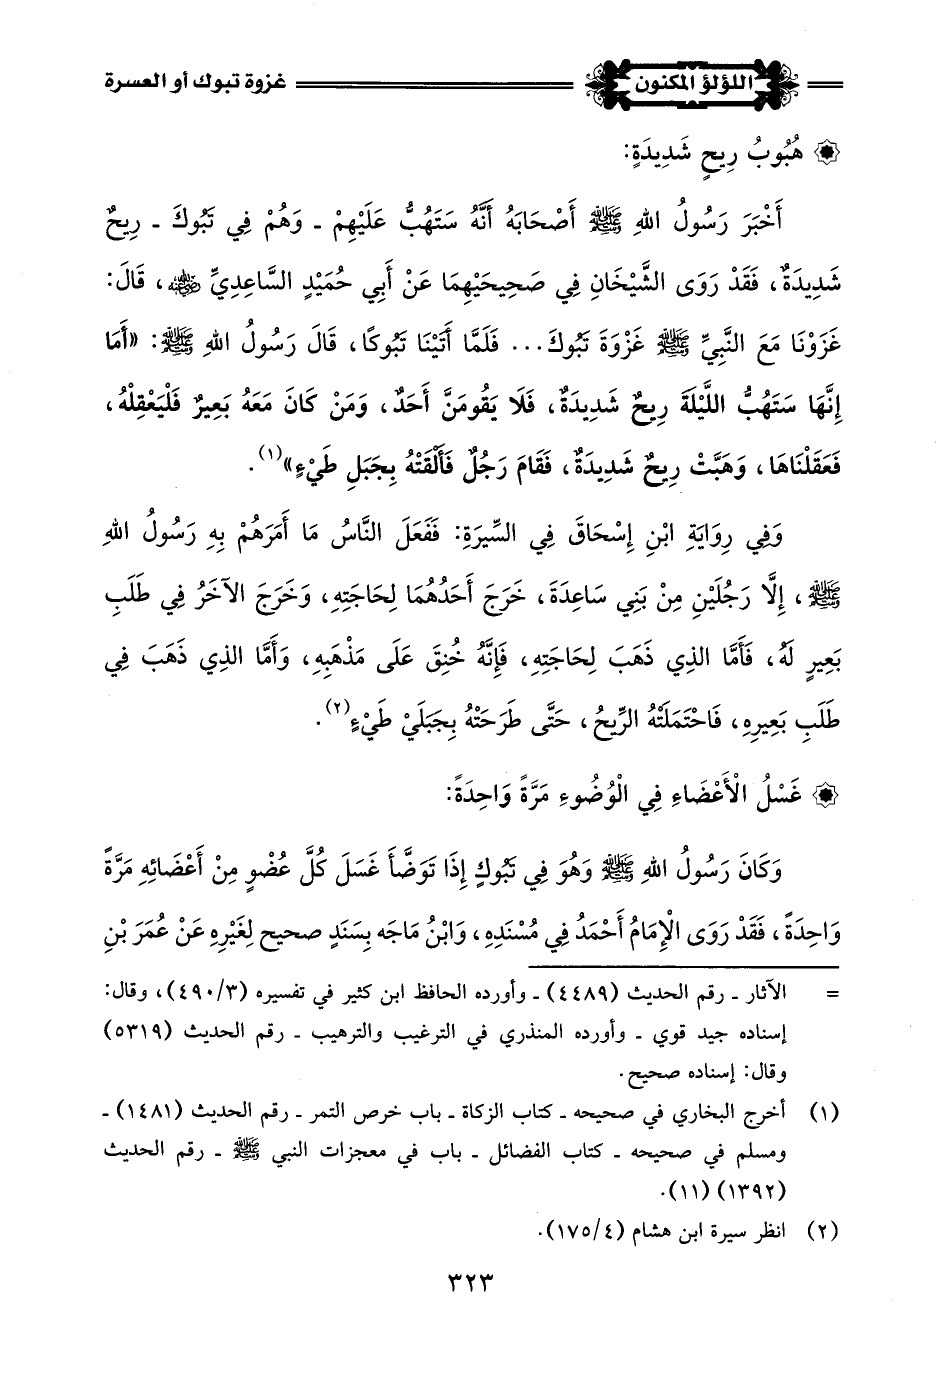 اللؤلؤ المكنون غزوة تبوك أو العسرة
هُبُوبُ رِيحٍ شَدِيدَةٍ:
أَخْبَرَ رَسُولُ اللهِ ﷺ أَصْحَابَهُ أَنَّهُ سَتَهُبُّ عَلَيْهِمْ - وَهُمْ فِي تَبُوكَ - رِيحٌ
شَدِيدَةٌ، فَقَدْ رَوَى الشَّيْخَانِ فِي صَحِيحَيْهِمَا عَنْ أَبِي حُمَيْدٍ السَّاعِدِيِّ رضي الله عنه، قَالَ:
غَزَوْنَا مَعَ النَّبِيِّ ﷺ غَزْوَةَ تَبُوكَ... فَلَمَّا أَتَيْنَا تَبُوكًا، قَالَ رَسُولُ اللهِ ﷺ: «أَمَا
إِنَّهَا سَتَهُبُّ اللَّيْلَةَ رِيحٌ شَدِيدَةٌ، فَلَا يَقُومَنَّ أَحَدٌ، وَمَنْ كَانَ مَعَهُ بَعِيرٌ فَلْيَعْقِلْهُ،
فَعَقَلْنَاهَا، وَهَبَّتْ رِيحٌ شَدِيدَةٌ، فَقَامَ رَجُلٌ فَأَلْقَتْهُ بِجَبَلِ طَيْءٍ»(١).
وَفِي رِوَايَةِ ابْنِ إِسْحَاقَ فِي السِّيرَةِ: فَفَعَلَ النَّاسُ مَا أَمَرَهُمْ بِهِ رَسُولُ اللهِ
ﷺ، إِلَّا رَجُلَيْنِ مِنْ بَنِي سَاعِدَةَ، خَرَجَ أَحَدُهُمَا لِحَاجَتِهِ، وَخَرَجَ الآخَرُ فِي طَلَبِ
بَعِيرٍ لَهُ، فَأَمَّا الذِي ذَهَبَ لِحَاجَتِهِ، فَإِنَّهُ خُنِقَ عَلَى مَذْهَبِهِ، وَأَمَّا الذِي ذَهَبَ فِي
طَلَبِ بَعِيرِهِ، فَاحْتَمَلَتْهُ الرِّيحُ، حَتَّى طَرَحَتْهُ بِجَبَلَيْ طَيْءٍ(٢).
غَسْلُ الْأَعْضَاءِ فِي الْوُضُوءِ مَرَّةً وَاحِدَةً:
وَكَانَ رَسُولُ اللهِ ﷺ وَهُوَ فِي تَبُوكٍ إِذَا تَوَضَّأَ غَسَلَ كُلَّ عُضْوٍ مِنْ أَعْضَائِهِ مَرَّةً
وَاحِدَةً، فَقَدْ رَوَى الْإِمَامُ أَحْمَدُ فِي مُسْنَدِهِ، وَابْنُ مَاجَه بِسَنَدٍ صحيح لِغَيْرِهِ عَنْ عُمَرَ بْنِ
= الآثار - رقم الحديث (٤٤٨٩) - وأورده الحافظ ابن كثير في تفسيره (٤٩٠/٣)، وقال:
إسناده جيد قوي - وأورده المنذري في الترغيب والترهيب - رقم الحديث (٥٣١٩)
وقال: إسناده صحيح.
(١) أخرج البخاري في صحيحه - كتاب الزكاة - باب خرص التمر - رقم الحديث (١٤٨١) -
ومسلم في صحيحه - كتاب الفضائل - باب في معجزات النبي ﷺ - رقم الحديث
(١٣٩٢) (١١).
(٢) انظر سيرة ابن هشام (١٧٥/٤).
٣٢٣